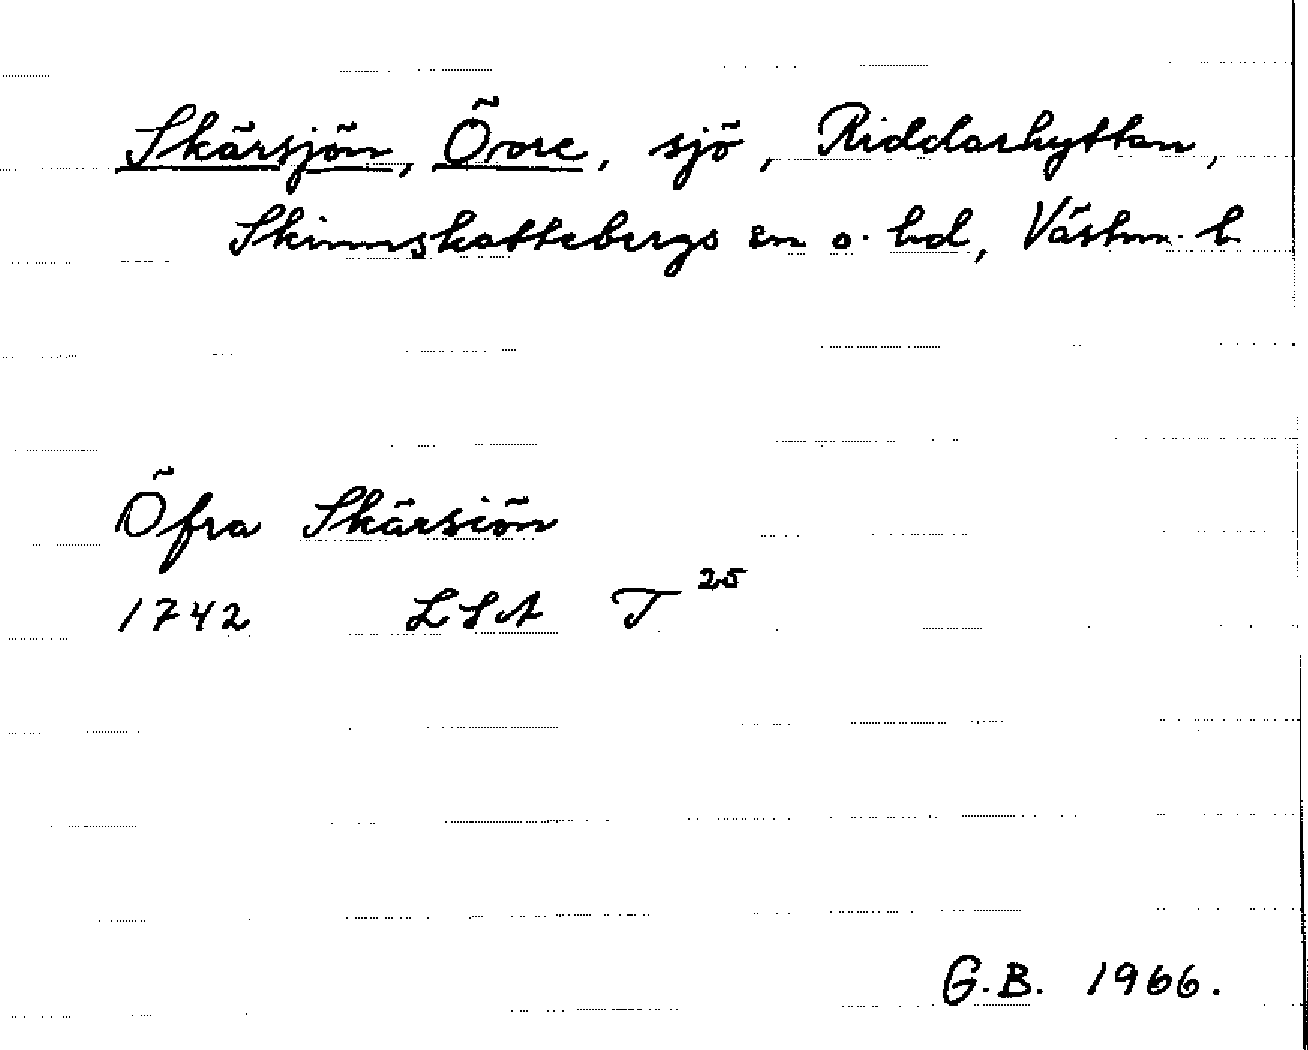 Skärsjön, Övre, sjö, Riddarhyttan,
Skinnskattebergs sn o. hd, Västm. l.
Öfra Skärsiön
1742 LSA T 25
G.B. 1966.